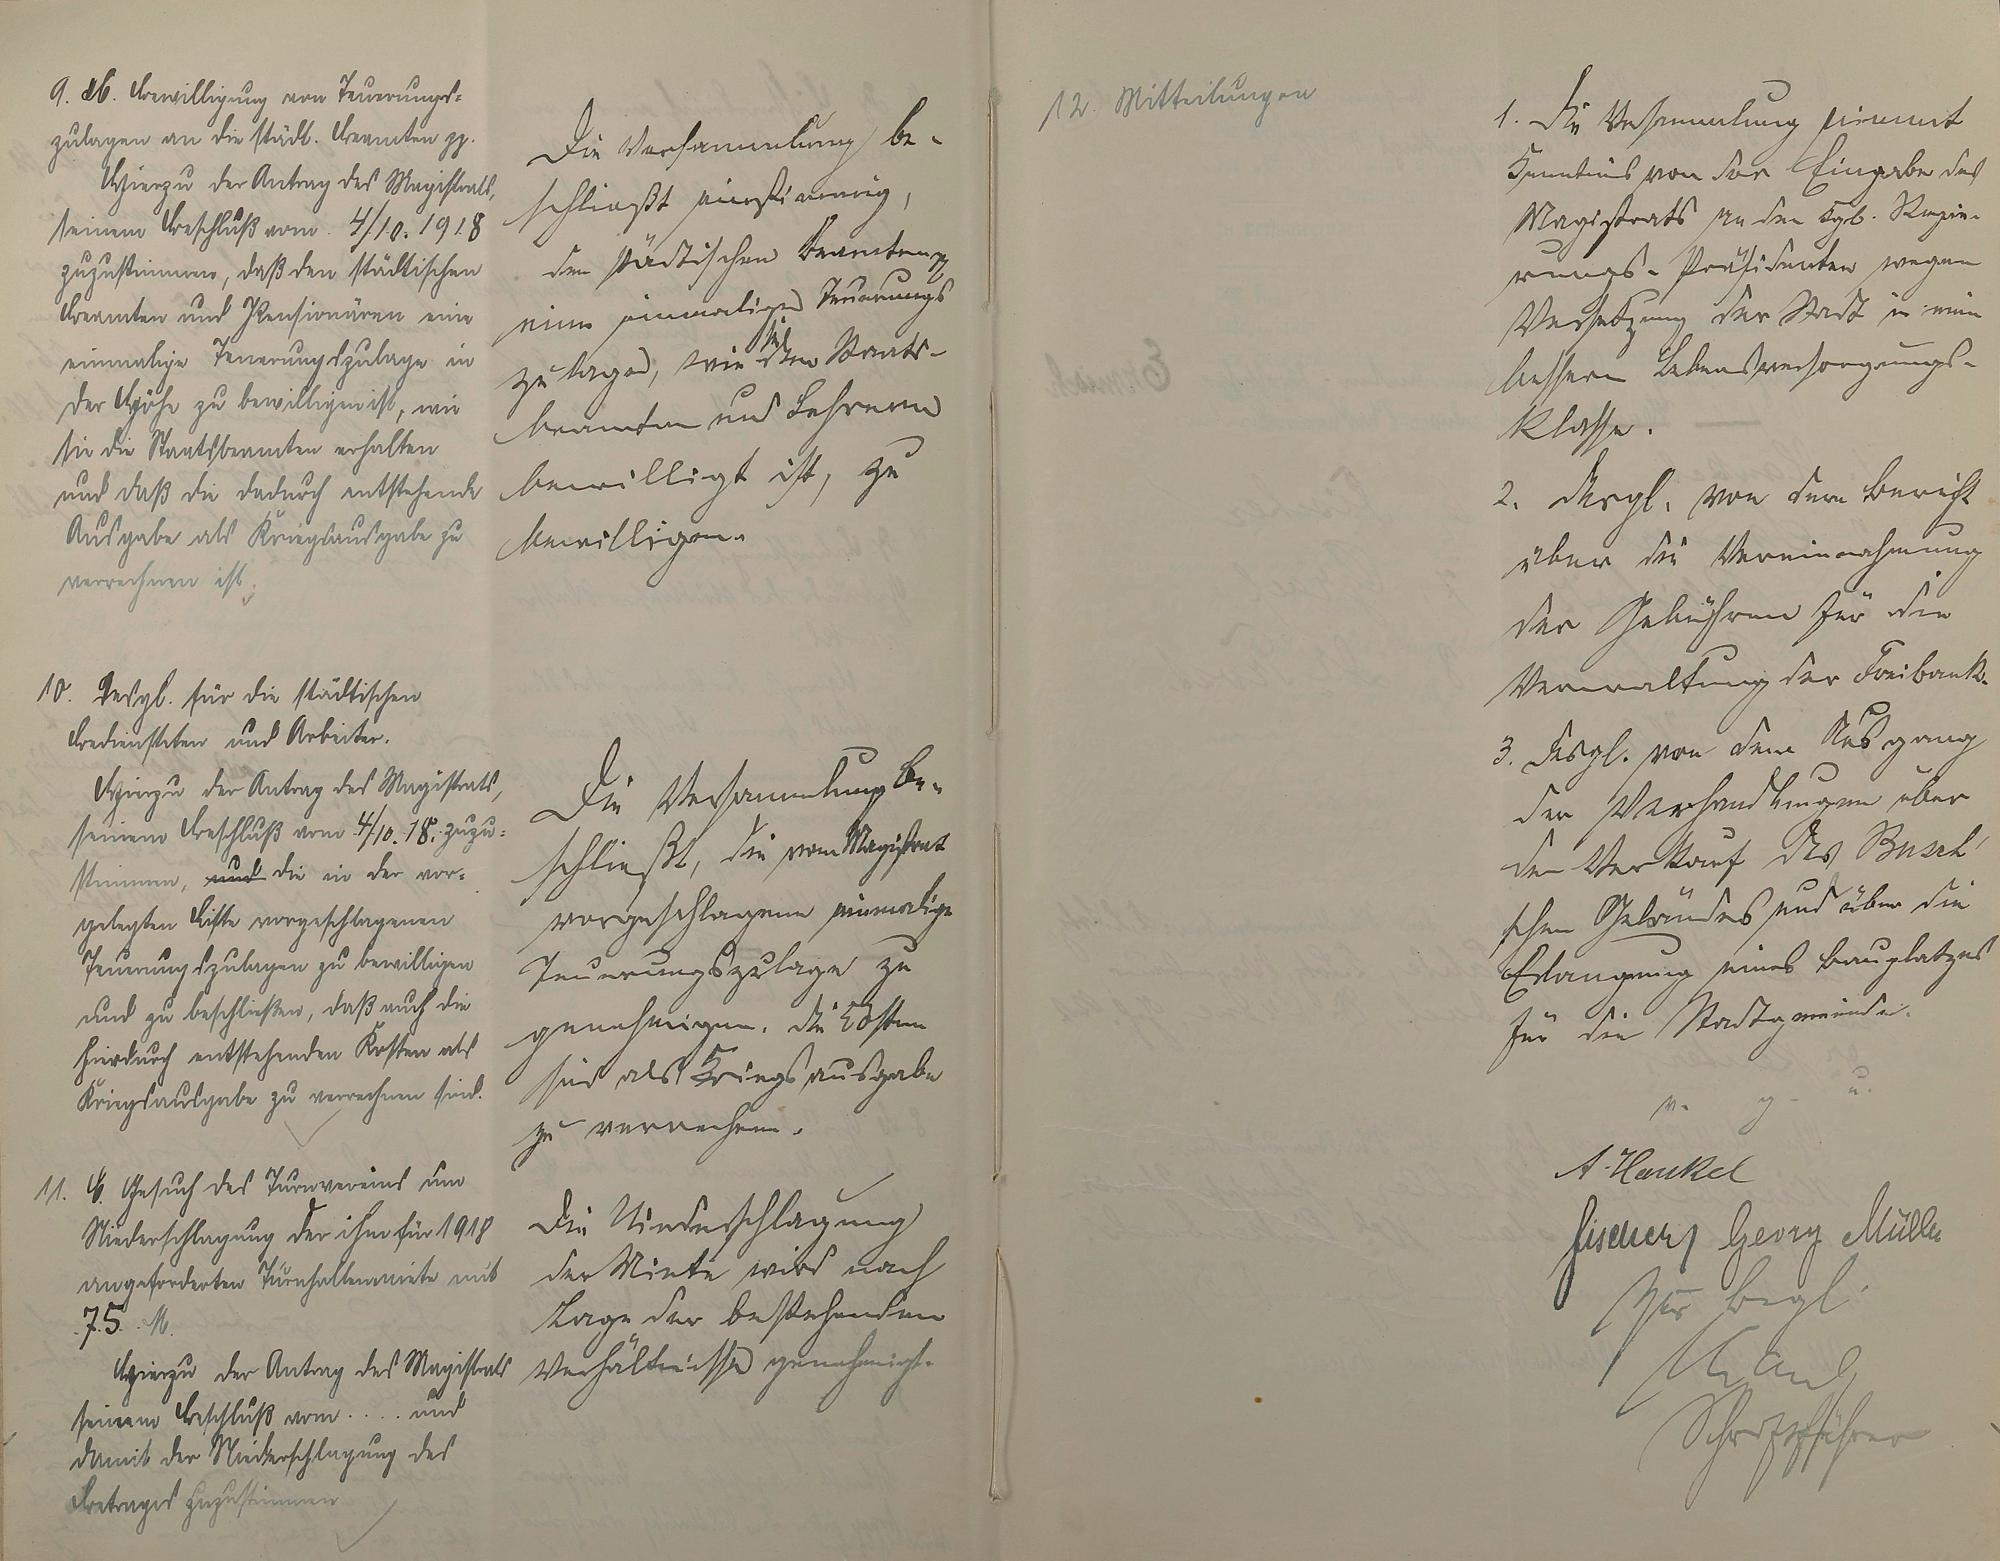 9. Bewilligung von Teuerungs-
zulagen an die städt. Beamten pp.
Hierzu der Antrag des Magistrats,
seinem Beschluß vom 4/10. 1918
zuzustimmen, daß den städtischen
Beamten und Pensionären eine
einmalige Teuerungszulage in
der Höhe zu bewilligen ist, wie
sie die Staatsbeamten erhalten
und daß die dadurch entstehende
Ausgabe als Kriegsausgabe zu
verrechnen ist.
Die Versammlung be-
schließt einstimmig,
den städtischen Beamten pp
eine einmalige Teuerungs
zulage, wie sie den Staats-
beamten und Lehrern
bewilligt ist, zu
bewilligen.
10. Desgl. für die städtischen
Bediensteten und Arbeiter.
Hierzu der Antrag des Magistrats,
seinem Beschluß vom 4/10. 18. zuzu-
stimmen, und die in der vor-
gelegten Liste vorgeschlagenen
Teuerungszulagen zu bewilligen
und zu beschließen, daß auch die
hierdurch entstehenden Kosten als
Kriegsausgabe zu verrechnen sind.
Die Versammlung be-
schließt, die vom Magistrat
vorgeschlagene einmalige
Teuerungszulage zu
genehmigen. Die Kosten
sind als Kriegsausgabe
zu verrechnen.
11. Gesuch des Turnvereins um
Niederschlagung der ihm für 1918
angeforderten Turnhallenmiete mit
75 M.
Hierzu der Antrag des Magistrats
seinem Beschluß vom .... und
damit der Niederschlagung des
Betrages zuzustimmen
Die Niederschlagung
der Miete wird nach
Lage der bestehenden
Verhältnisse genehmigt.
12. Mitteilungen
1. Die Versammlung nimmt
Kenntnis von der Eingabe des
Magistrats an den Kgl. Regie-
rungs-Präsidenten wegen
Versetzung der Stadt in eine
bessere Lebensversorgungs-
klasse.
2. Desgl. von dem Bericht
über die Vereinnahmung
der Gebühren für die
Verwaltung der Freibank.
3. Desgl. von dem Ausgang
der Verhandlungen über
den Verkauf des Busch'
schen Gebäudes und über die
Erlangung eines Bauplatzes
für die Stadtgemeinde.
v. g. u.
A. Hankel
Fischer Georg Müller
Zur Begl.
Schriftführer